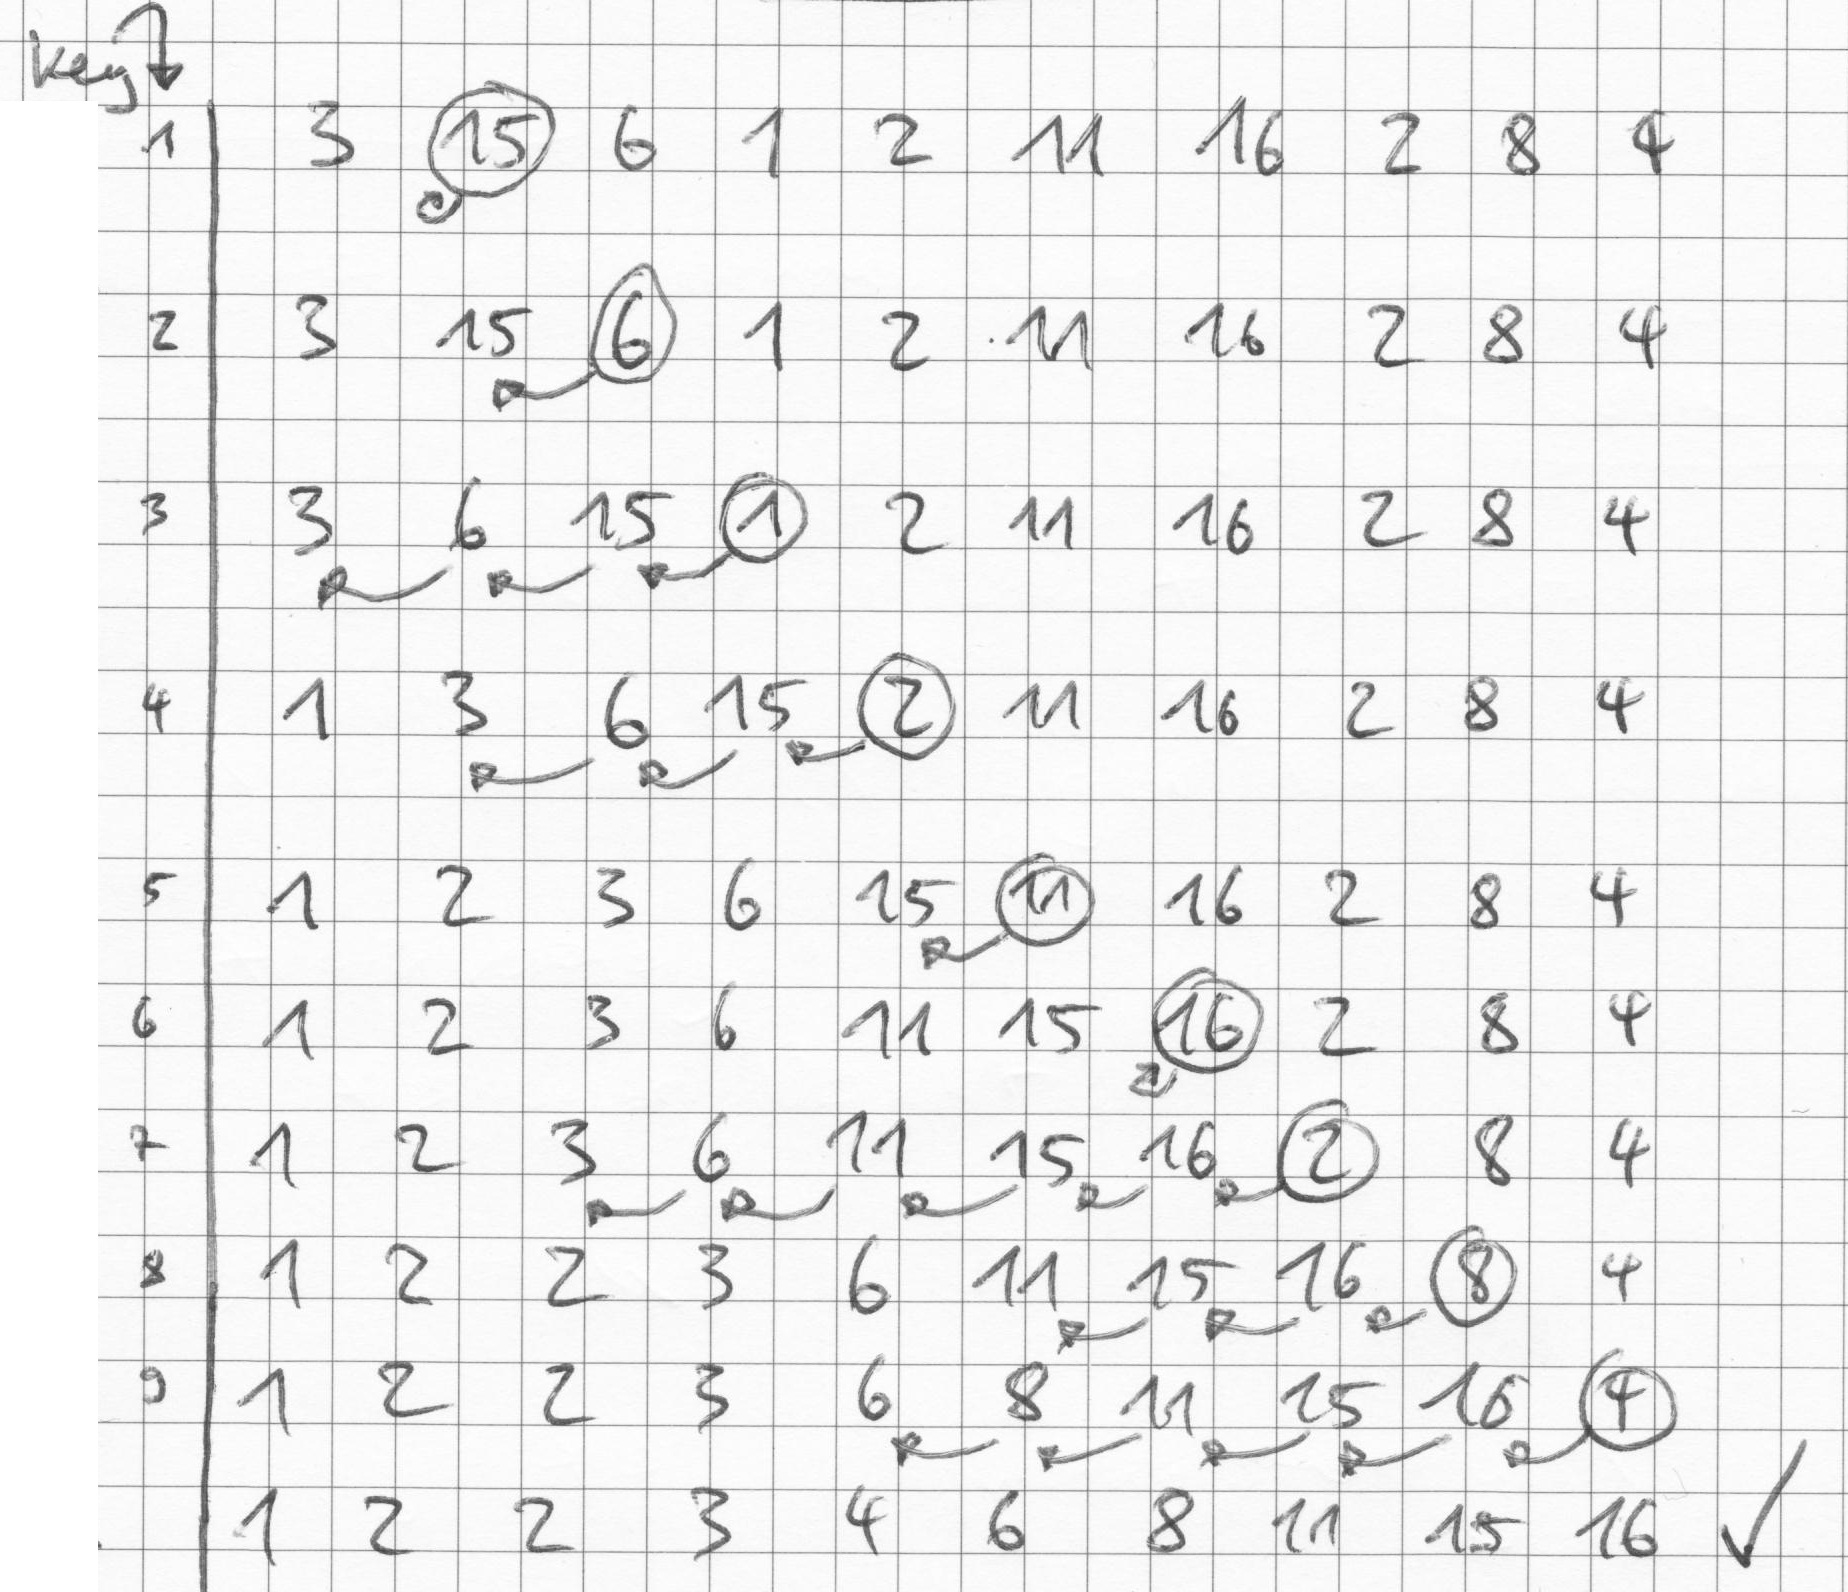 key
1 3 15 6 1 2 11 16 2 8 4
2 3 15 6 1 2 11 16 2 8 4
3 3 6 15 1 2 11 16 2 8 4
4 1 3 6 15 2 11 16 2 8 4
5 1 2 3 6 15 11 16 2 8 4
6 1 2 3 6 11 15 16 2 8 4
7 1 2 3 6 11 15 16 2 8 4
8 1 2 2 3 6 11 15 16 8 4
9 1 2 2 3 6 8 11 15 16 4
1 2 2 3 4 6 8 11 15 16 ✓